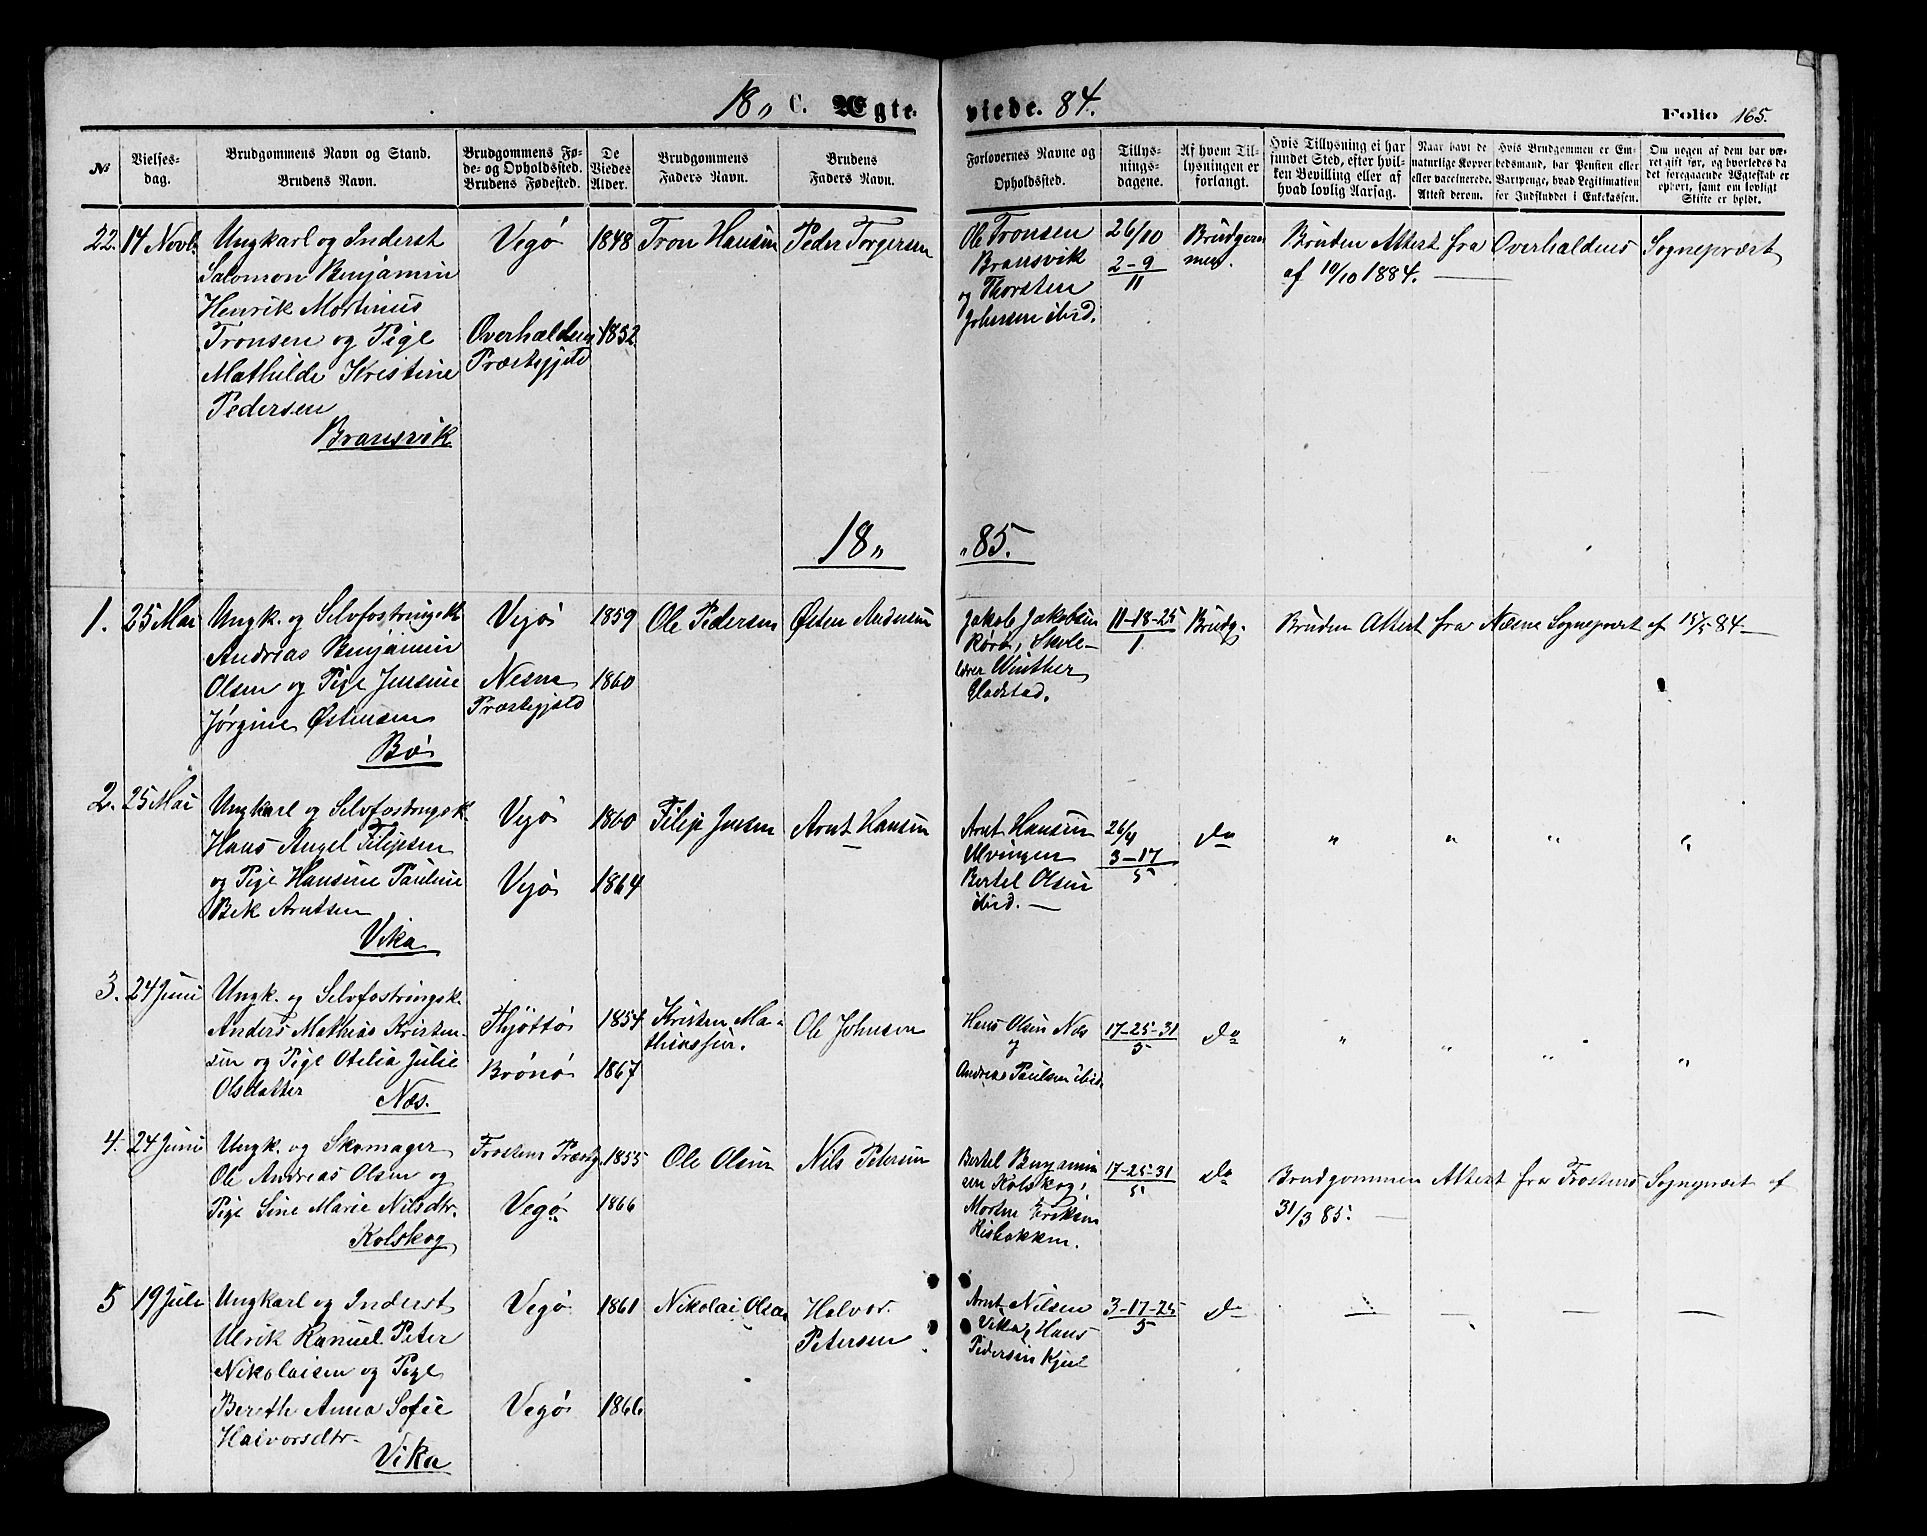 18,, C. Ægte-
viede. 84.
Folio 165.
№
Vielses-
dag.
Brudgommens Navn og Stand.
Brudens Navn.
Brudgommens Fø-
de- og Opholdssted.
Brudens Fødested.
De
Viedes
Alder.
Brudgommens
Faders Navn.
Brudens
Faders Navn.
Forlovernes Navne og
Opholdssted.
Tillys-
nings-
dagene.
Af hvem Til-
lysningen er
forlangt.
Hvis Tillysning ei har
fundet Sted, efter hvil-
ken Bevilling eller af
hvad lovlig Aarsag.
Naar havt de
naturlige Kopper
eller vaccinerede.
Attest derom.
Hvis Brudgommen er Em-
bedsmand, har Pension eller
Vartpenge, hvad Legitimation
for Indskuddet i Enkekassen.
Om nogen af dem har væ-
ret gift før, og hvorledes da
det foregaaende Ægteskab er
ophørt, samt om lovligt
Skifte er holdt.
22. 14 Novb.
Ungkarl og Inderst
Salomon Benjamin
Henrik Mortinus
Tronsen og Pige
Mathilde Kristine
Pedersen
Bransvik
Vegø
Overhaldens
Præstegjeld
1848
1852
Tron Hansen
Peder Torgersen
Ole Tronsen
Bransvik
og Thorsten
Johnsen ibid.
26/10
2-9
11
Brudgom
men.
Bruden Attest fra Overhaldens Sognepræst
af 10/10 1884.
18,, ,,85.
1. 25 Mai
Ungk. og Selvfostringsk.
Andreas Benjamin
Olsen og Pige Jensine
Jørgine Østensen
Bø
Vegø
Nesna
Præstegjeld
1859
1860
Ole Pedersen
Østen Andersen
Jakob Jakobsen
Rørø, Skole-
lærer Winther
Gladstad.
11-18-25
1
Brudg.
Bruden Attest fra Næsne Sognepræst af 15/5 84
2. 25 Mai
Ungkarl og Selvfostringsk.
Hans Angel Filipsen
og Pige Hansine Pauline
Bek Arntsen
Vika
Vegø
Vegø
1860
1864
Filip Jensen
Arnt Hansen
Arnt Hansen
Ulvingen
Bertel Olsen
ibid.
26/4
3-17
5
do
" " " "
3. 24 Juni
Ungk. og Selvfostringsk.
Anders Mathias Kristen-
sen og Pige Otelia Julie
Olsdatter
Næs.
Thjøttø
Brønø
1854
1867
Kristen Ma-
thiassen.
Ole Johnsen
Hans Olsen Næs
og
Andreas Paulsen ibid.
17-25-31
5
do
" " " "
4. 24 Juni
Ungk. og Skomager
Ole Andreas Olsen og
Pige Sine Marie Nilsdtr.
Kolskog
Frostens Præstg.
Vegø
1855
1866
Ole Olsen
Nils Petersen
Bertel Benjamin
sen Kolskog,
Morten Eriksen
Risbakken.
17-25-31
5
do
Brudgommen Attest fra Frostens Sognepræst af
31/3 85.
5 19 Juli
Ungkarl og Inderst
Ulrik Kanuel Peter
Nikolaisen og Pige
Bereth Anna Sofie
Halvorsdtr.
Vika
Vegø
Vegø
1861
1866
Nikolai Olsen
Halvor
Petersen
Arnt Nilsen
Vika, Hans
Pedersen Kjul
3-17-25
5
do